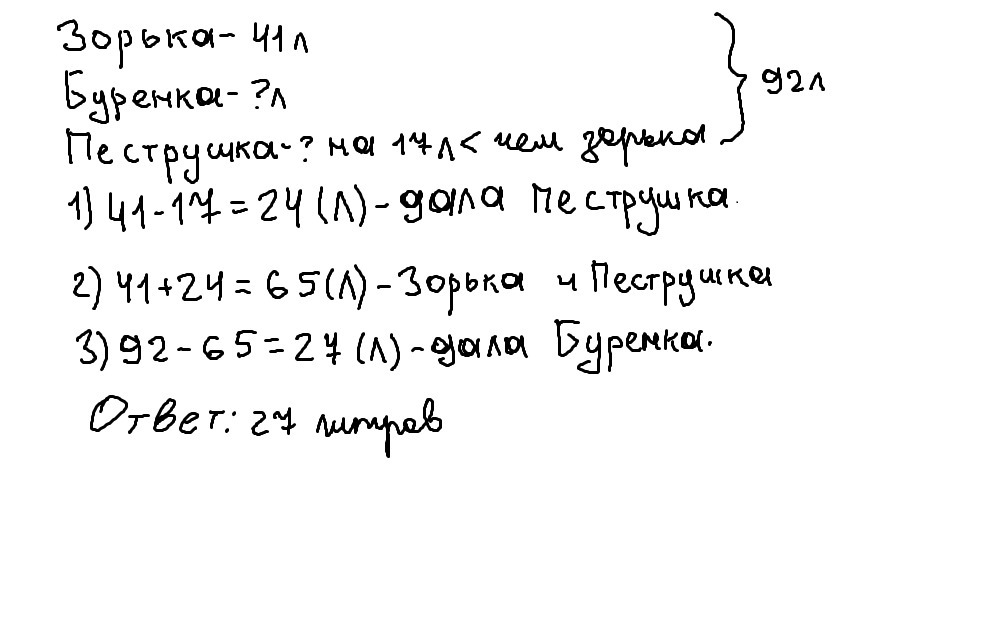 Зорька- 41л
Буренка- ?л
Пеструшка-? на 17л< чем зорька } 92л
1) 41-17=24(л)-дала Пеструшка.
2) 41+24=65(л)-Зорька и Пеструшка
3) 92-65=27(л)-дала Буренка.
Ответ: 27 литров